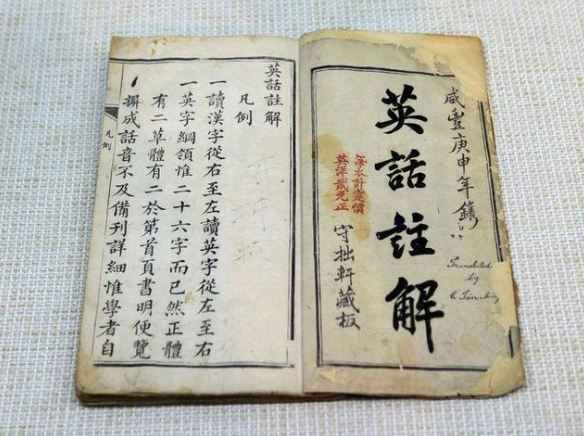 咸豐庚申年鐫
英話註解
每本計寔價
英洋貳元正
守拙軒藏板
Translated
by
英話註解
凡例
一讀漢字從右至左讀英字從左至右
一英字綱領惟二十六字而已然正體
有二草體有二於第首頁書明便覽
摒成話音不及備刊詳細惟學者自
凡例